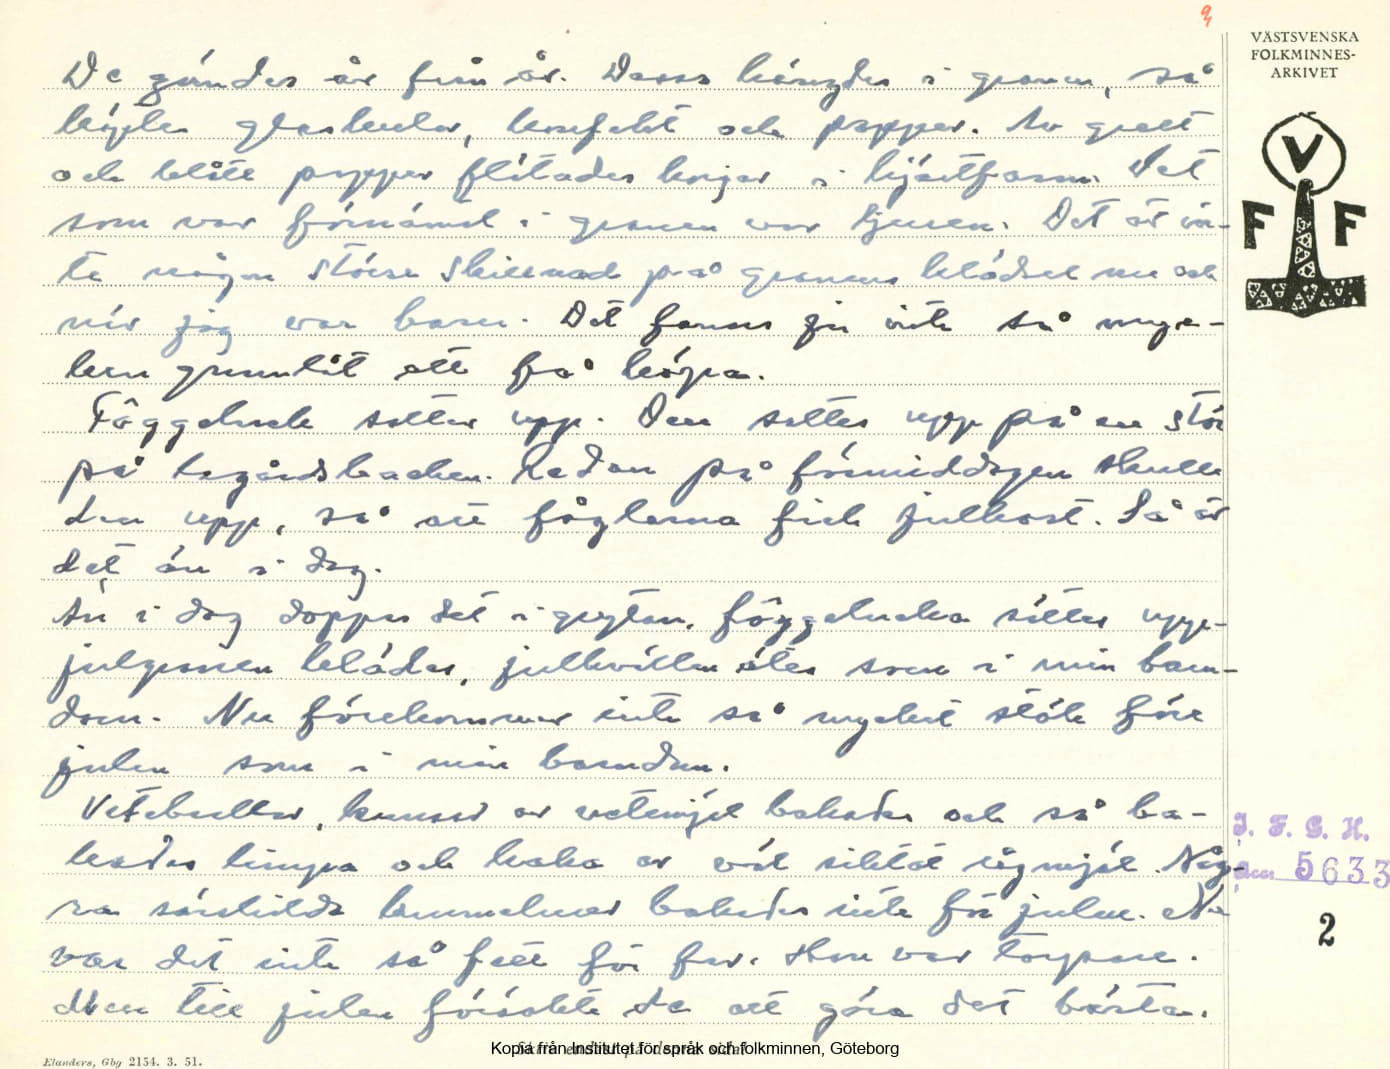 9
VÄSTSVENSKA
FOLKMINNES-
ARKIVET
V
F F
De gömdes år från år. Dessa hängdes i granen, så
köptes glaskulor, konfekt och papper. Av grått
och blått papper flätades korgar i hjärtform. Det
som var förnämst i granen var ljusen. Det är in-
te någon större skillnad på granens klädsel nu och
när jag var barn. Det fanns ju inte så myc-
ken grannlåt att få köpa.
Föggelneck sattes upp. Den sattes upp på en stör
på lagårdsbacken. Redan på förmiddagen skulle
den upp, så att fåglarna fick julkost. Så är
det än i dag.
Än i dag doppas det i grytan, föggelneka sättes upp-
julgranen klädes, julkvällen ätes som i min barn-
dom. Nu förekommer inte så mycket stök före
julen som i min barndom.
Vetebullar, kransar av vetemjöl bakades och så ba-
kades limpa och kaka av väl siktat rågmjöl. Någ-
ra särskilda krumelurer bakades inte för julen. Nu
var det inte så fett för far. Han var torpare.
Men till julen försökte de att göra det bästa.
I. F. G. H.
5633
2
Kopia från Institutet för språk och folkminnen, Göteborg
Elanders, Gbg 2154. 3. 51.